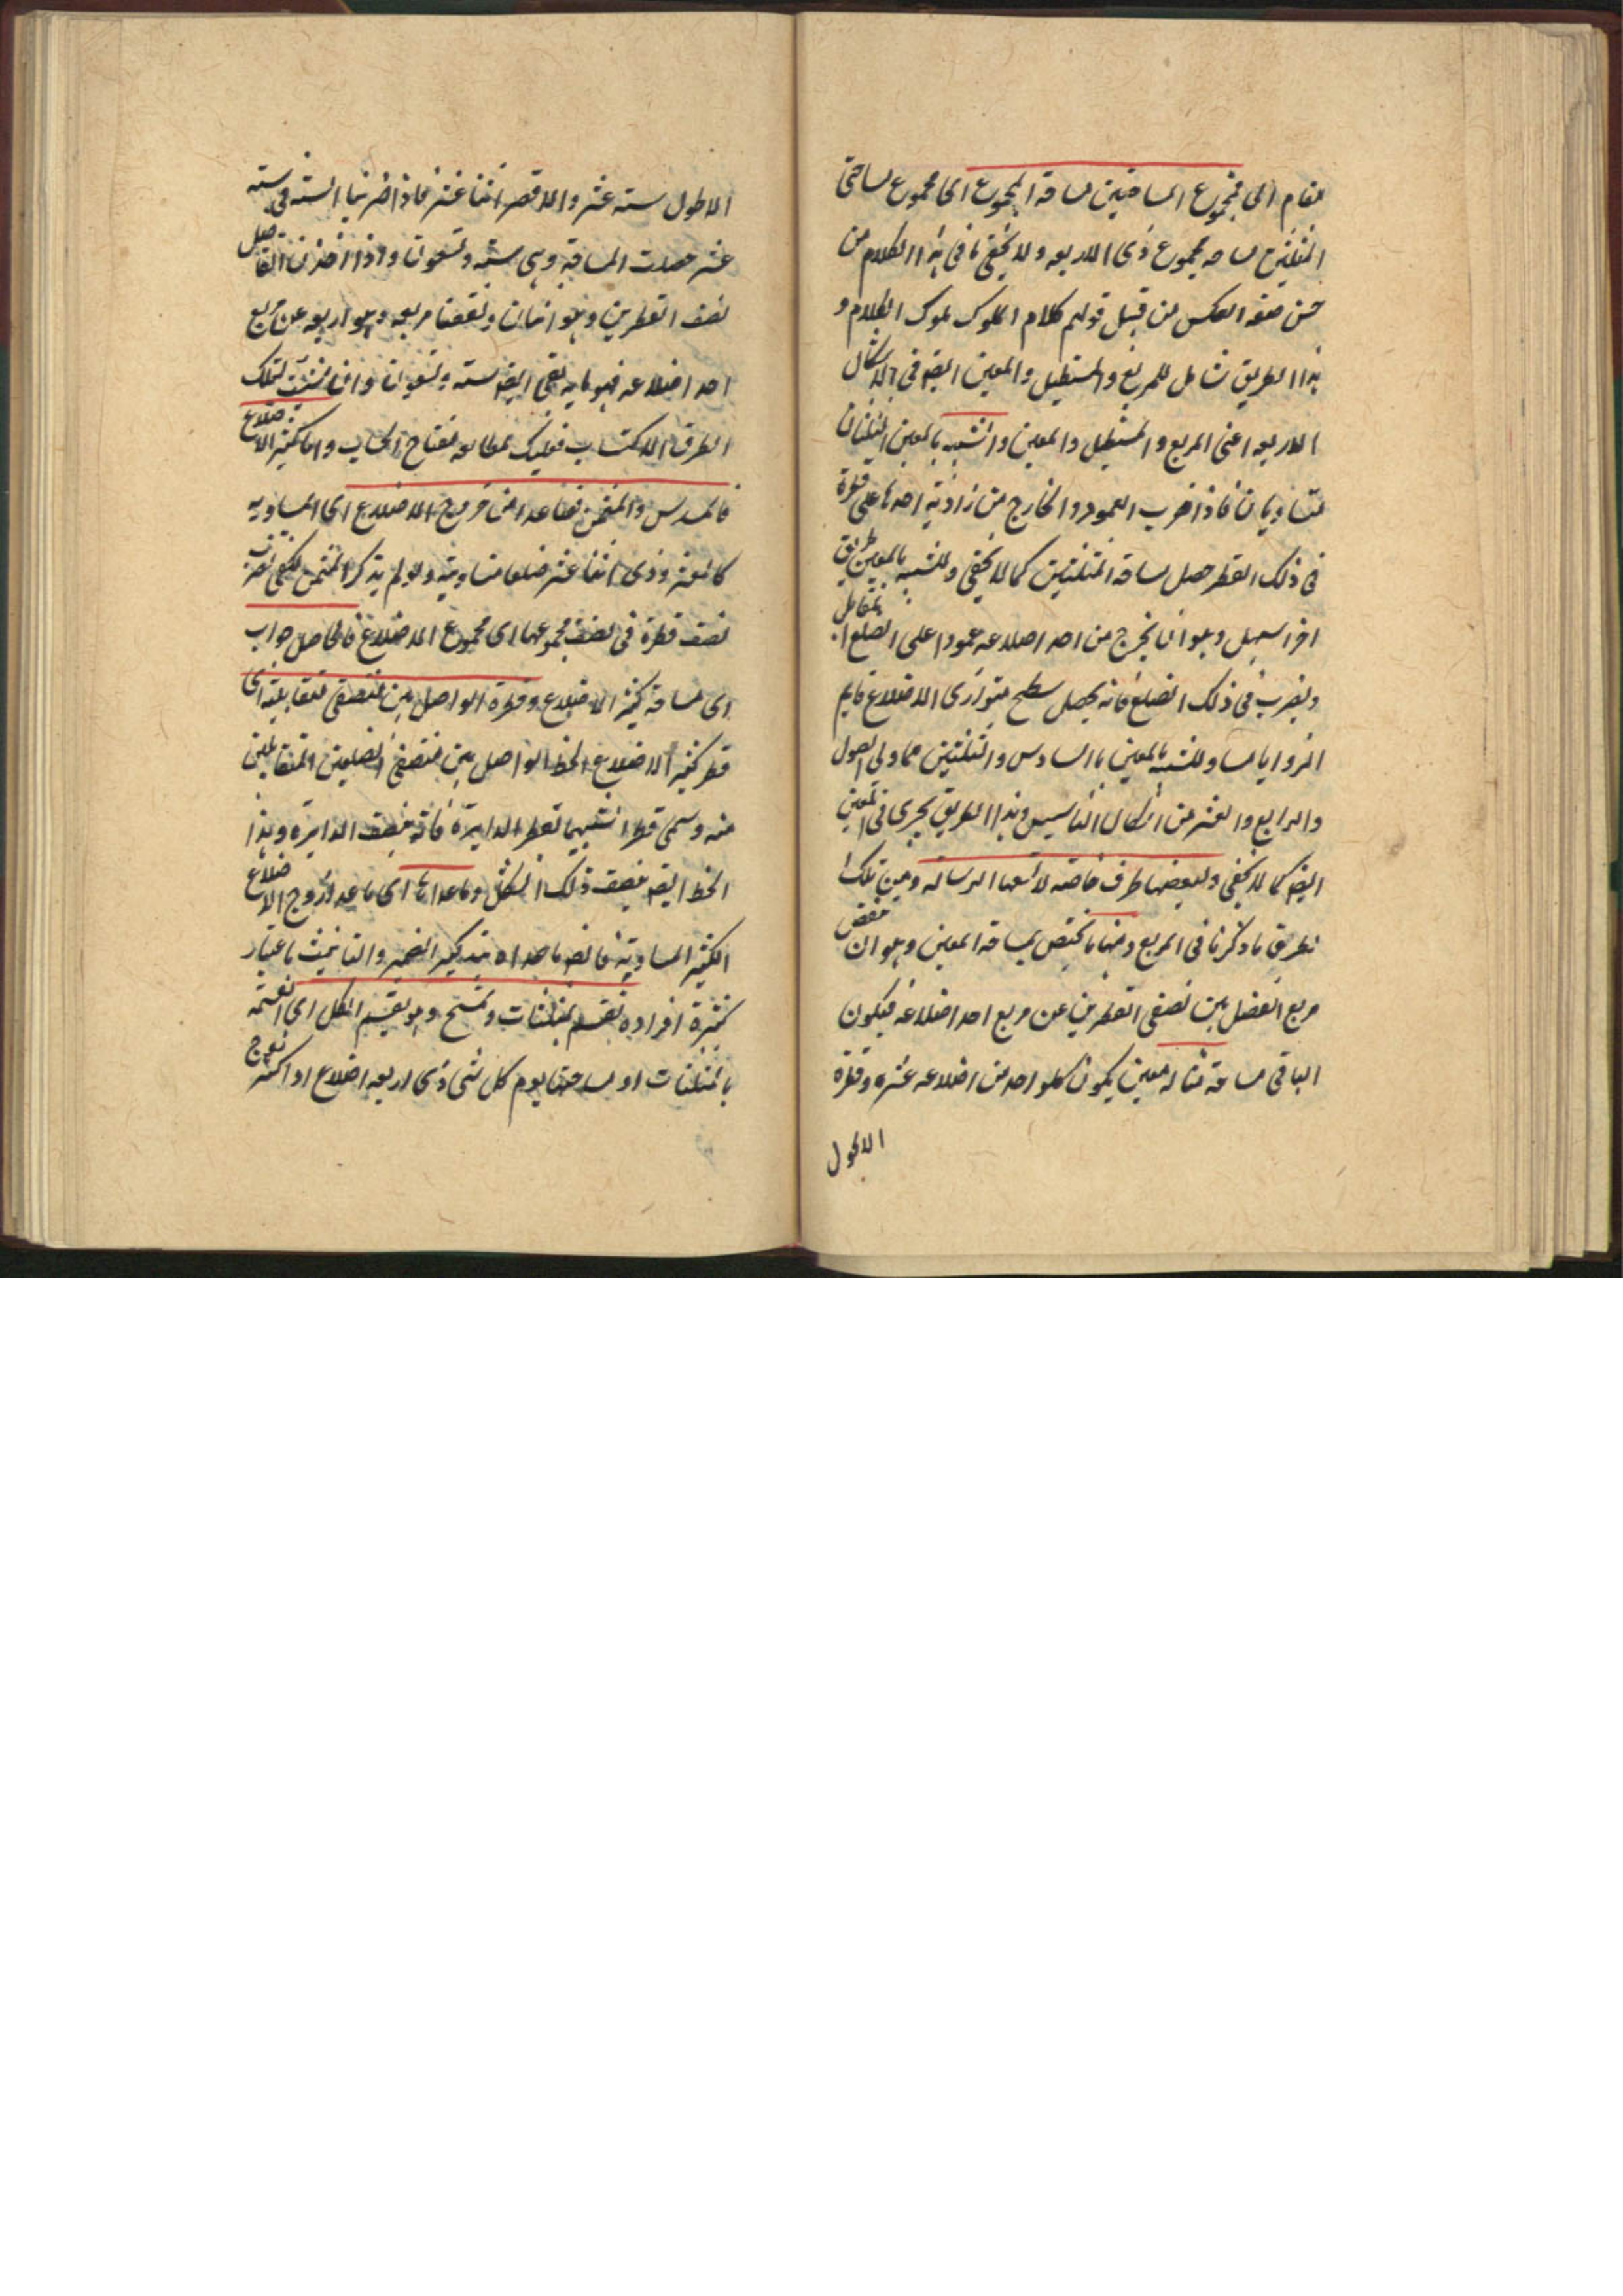 مقام الى مجموع المساحتين مساحة المجموع اى مجموع مساحتى
المثلثين مساحه مجموع ذى الاربعه ولا يخفى ما فى هذا الكلام من
حسن صنعه العكس من قبيل قولهم كلام الملوك ملوك الكلام و
هذا الطريق شامل للمربع والمستطيل والمعين ايضا فى الاشكال
الاربعه اعنى المربع والمستطيل والمعين والشبيه بالمعين المثلثان
متساويان فاذا ضرب العمود الخارج من زاوية احدهما على قطره
فى ذلك القطر حصل مساحة المثلثين كما لا يخفى وللشبيه بالمعين طريق
اخر اسهل وهو ان يخرج من احد اضلاعه عمود اعلى الضلع المقابل
ويضرب فى ذلك الضلع فانه يحصل سطح متوازى الاضلاع قايم
الزوايا مساو للشبيه بالمعين بالسادس والثلثين من اولى الاصول
والرابع والعشر من اشكال التاسيس وهذا الطريق يجرى فى المعين
ايضا كما لا يخفى ولبعضها طرق خاصته لا تسعها الرسالة ومن تلك
الطريق ما ذكرنا فى المربع ومنها ما يختص بمساحة المعين وهو ان ينقص
مربع الفضل بين نصفى القطرين عن مربع احد اضلاعه فيكون
الباقى مساحة مثاله معين يكون كلواحد من اضلاعه عشره وقطره
الاطول
الاطول سته عشر والاقصر اثنا عشر فاذا ضربنا السته فى سته
عشر حصلت المساحة وهى سته وتسعون واذا اخذنا التفاضل
نصف القطرين وهو اثنان ونقصنا مربعه وهو اربعه عن مربع
احد اضلاعه فهو مايه بقى ايضا سته وتسعون وان شئت تلك
الطرق الاكتساب فعليك بمطالعه مفتاح الحساب واما كثير الاضلاع
فالمسدس والمثمن فصاعدا من زوج الاضلاع اى المساويه
كالعشر وذى اثنا عشر ضلعا متساوية ولو لم يذكر المثمن لكفى تضرب
نصف قطره فى نصف مجموعها اى مجموع الاضلاع فالحاصل جواب
اى مساحة كثير الاضلاع وقطره الواصل بين منتصفى متقابلية اى
قطر كثير الاضلاع الخط الواصل بين منتصفى الضلعين المتقابلين
منه وسمى قطرا تشبيها بقطر الدايرة فانه ينصف الدايرة وهذا
الخط ايضا ينصف ذلك الشكل وما عداها اى ما عدا زوج الاضلاع
الكثير المساوية فايضا ما عداه بتذكير الضمير والتانيث باعتبار
كثيرة افراده تقسم بمثلثات وتمسح وهو يقسم الكل اى القسمة
بالمثلثات او مساحتها يوم كل شى ذى اربعه اضلاع او اكثر زوج